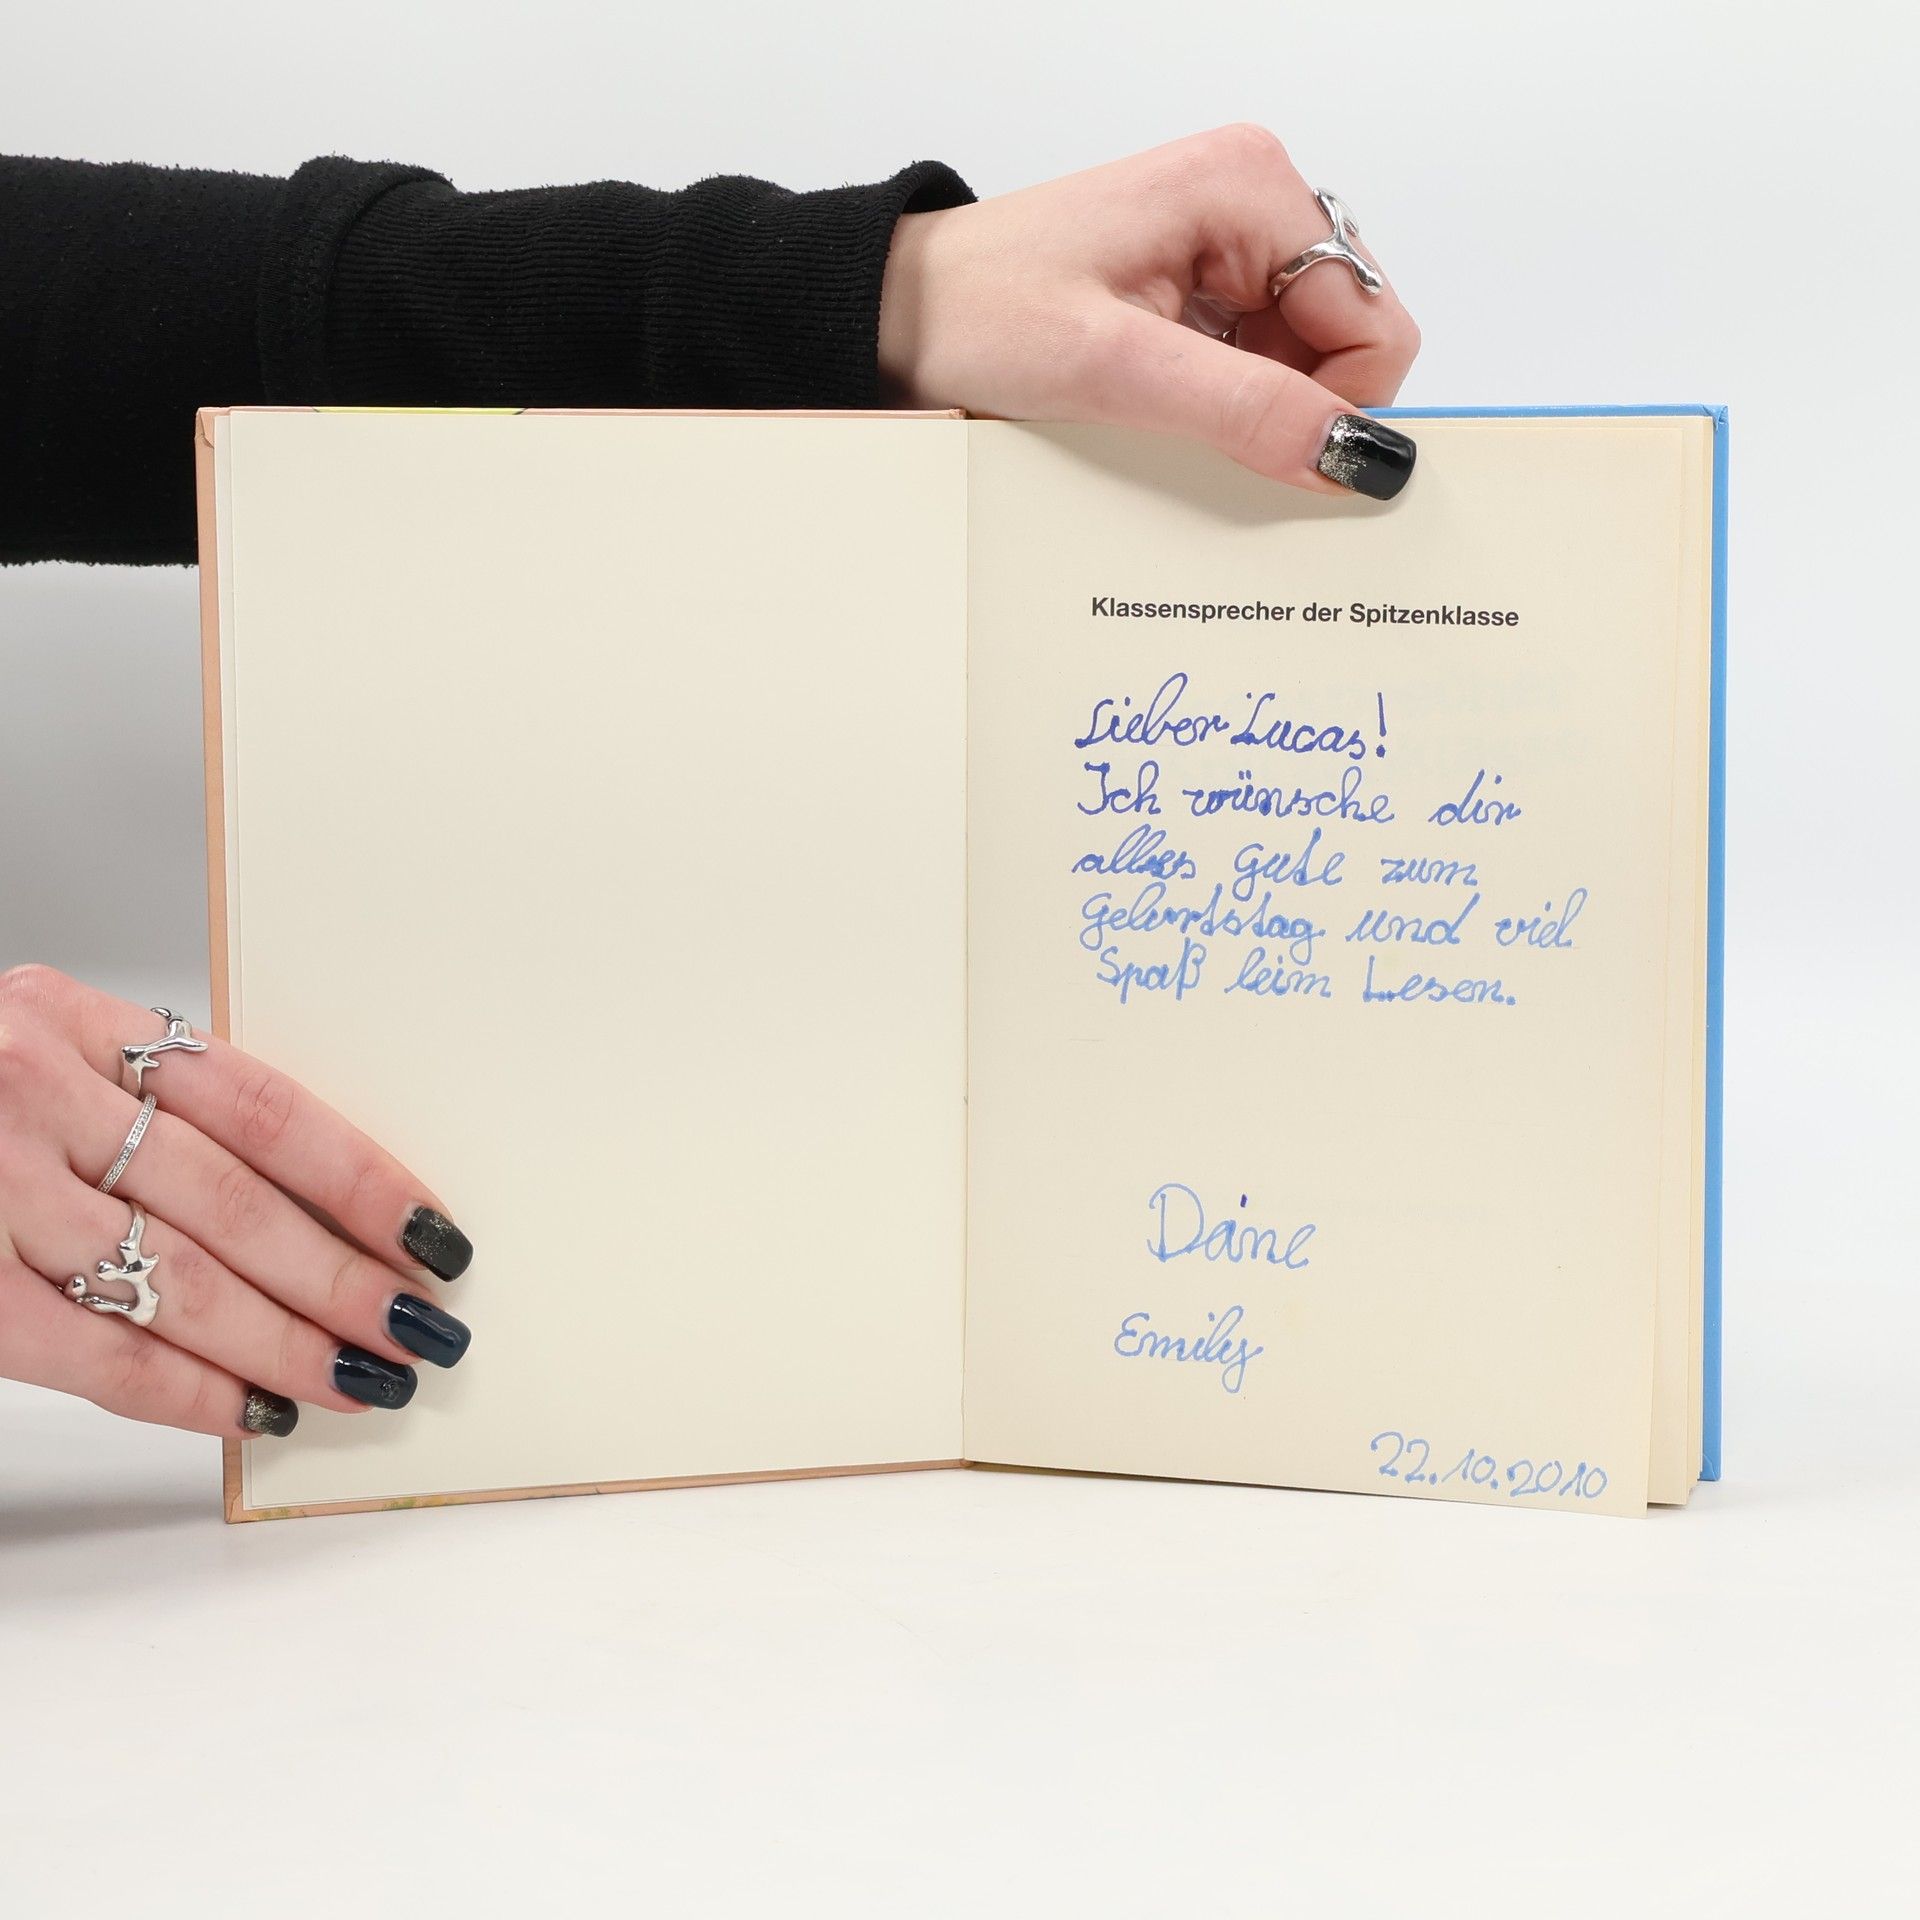 Klassensprecher der Spitzenklasse
Lieber Lucas!
Ich wünsche dir
alles gute zum
Geburtstag und viel
Spaß beim Lesen.
Deine
Emily
22.10.2010